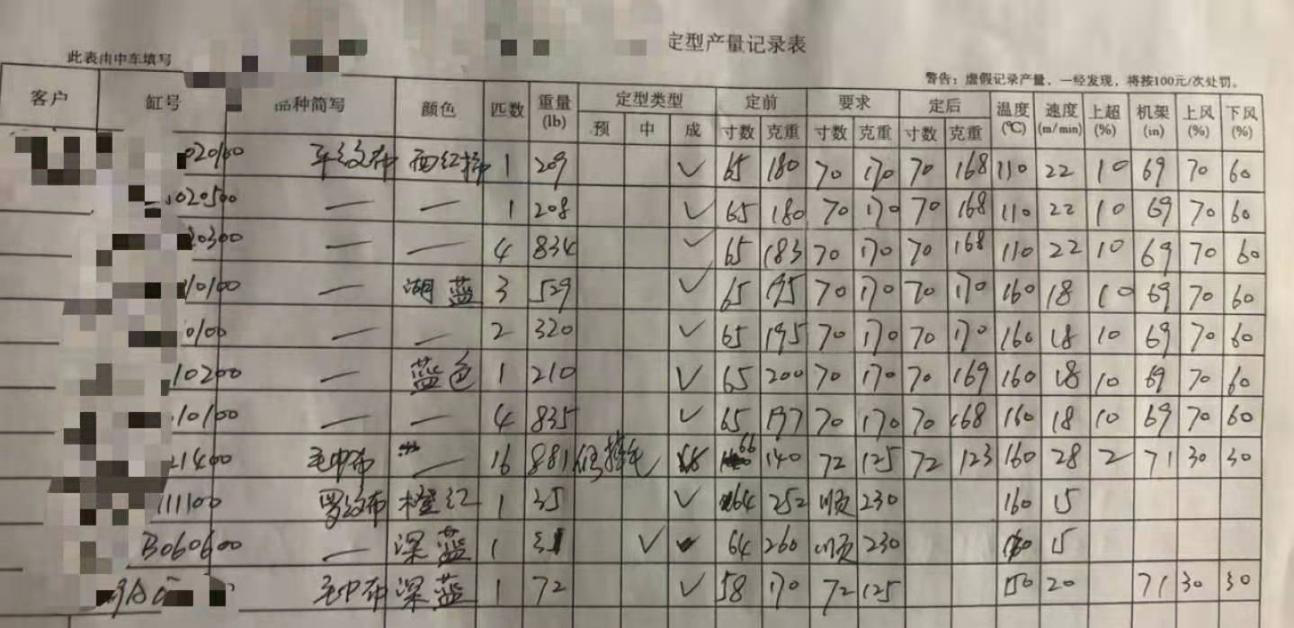 定型产量记录表
此表由中车填写
警告：虚假记录产量，一经发现，将按100元/次处罚。
客户 缸号 品种简写 颜色 匹数 重量(lb) 定型类型 定前 要求 定后 温度(℃) 速度(m/min) 上超(%) 机架(in) 上风(%) 下风(%)
预 中 成 寸数 克重 寸数 克重 寸数 克重
020100 平纹布 西红柿 1 209 ✓ 65 180 70 170 70 168 110 22 10 69 70 60
020500 — — 1 208 ✓ 65 180 70 170 70 168 110 22 10 69 70 60
20300 — — 4 834 ✓ 65 183 70 170 70 168 110 22 10 69 70 60
10100 — 湖蓝 3 529 ✓ 65 195 70 170 70 170 160 18 10 69 70 60
0100 — — 2 320 ✓ 65 195 70 170 70 170 160 18 10 69 70 60
10200 — 蓝色 1 210 ✓ 65 200 70 170 70 169 160 18 10 69 70 60
10100 — — 4 835 ✓ 65 197 70 170 70 168 160 18 10 69 70 60
21400 毛巾布 — 16 881 66 140 72 125 72 123 160 28 2 71 30 30
111100 罗纹布 橙红 1 35 ✓ 64 252 顺 230 160 15
B060600 — 深蓝 1 ✓ 64 260 顺 230 15
毛巾布 深蓝 1 72 ✓ 58 170 72 125 150 20 71 30 30